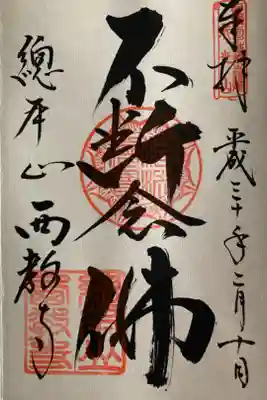 奉拝
平成三十年二月十日
不断念佛
總本山 西教寺